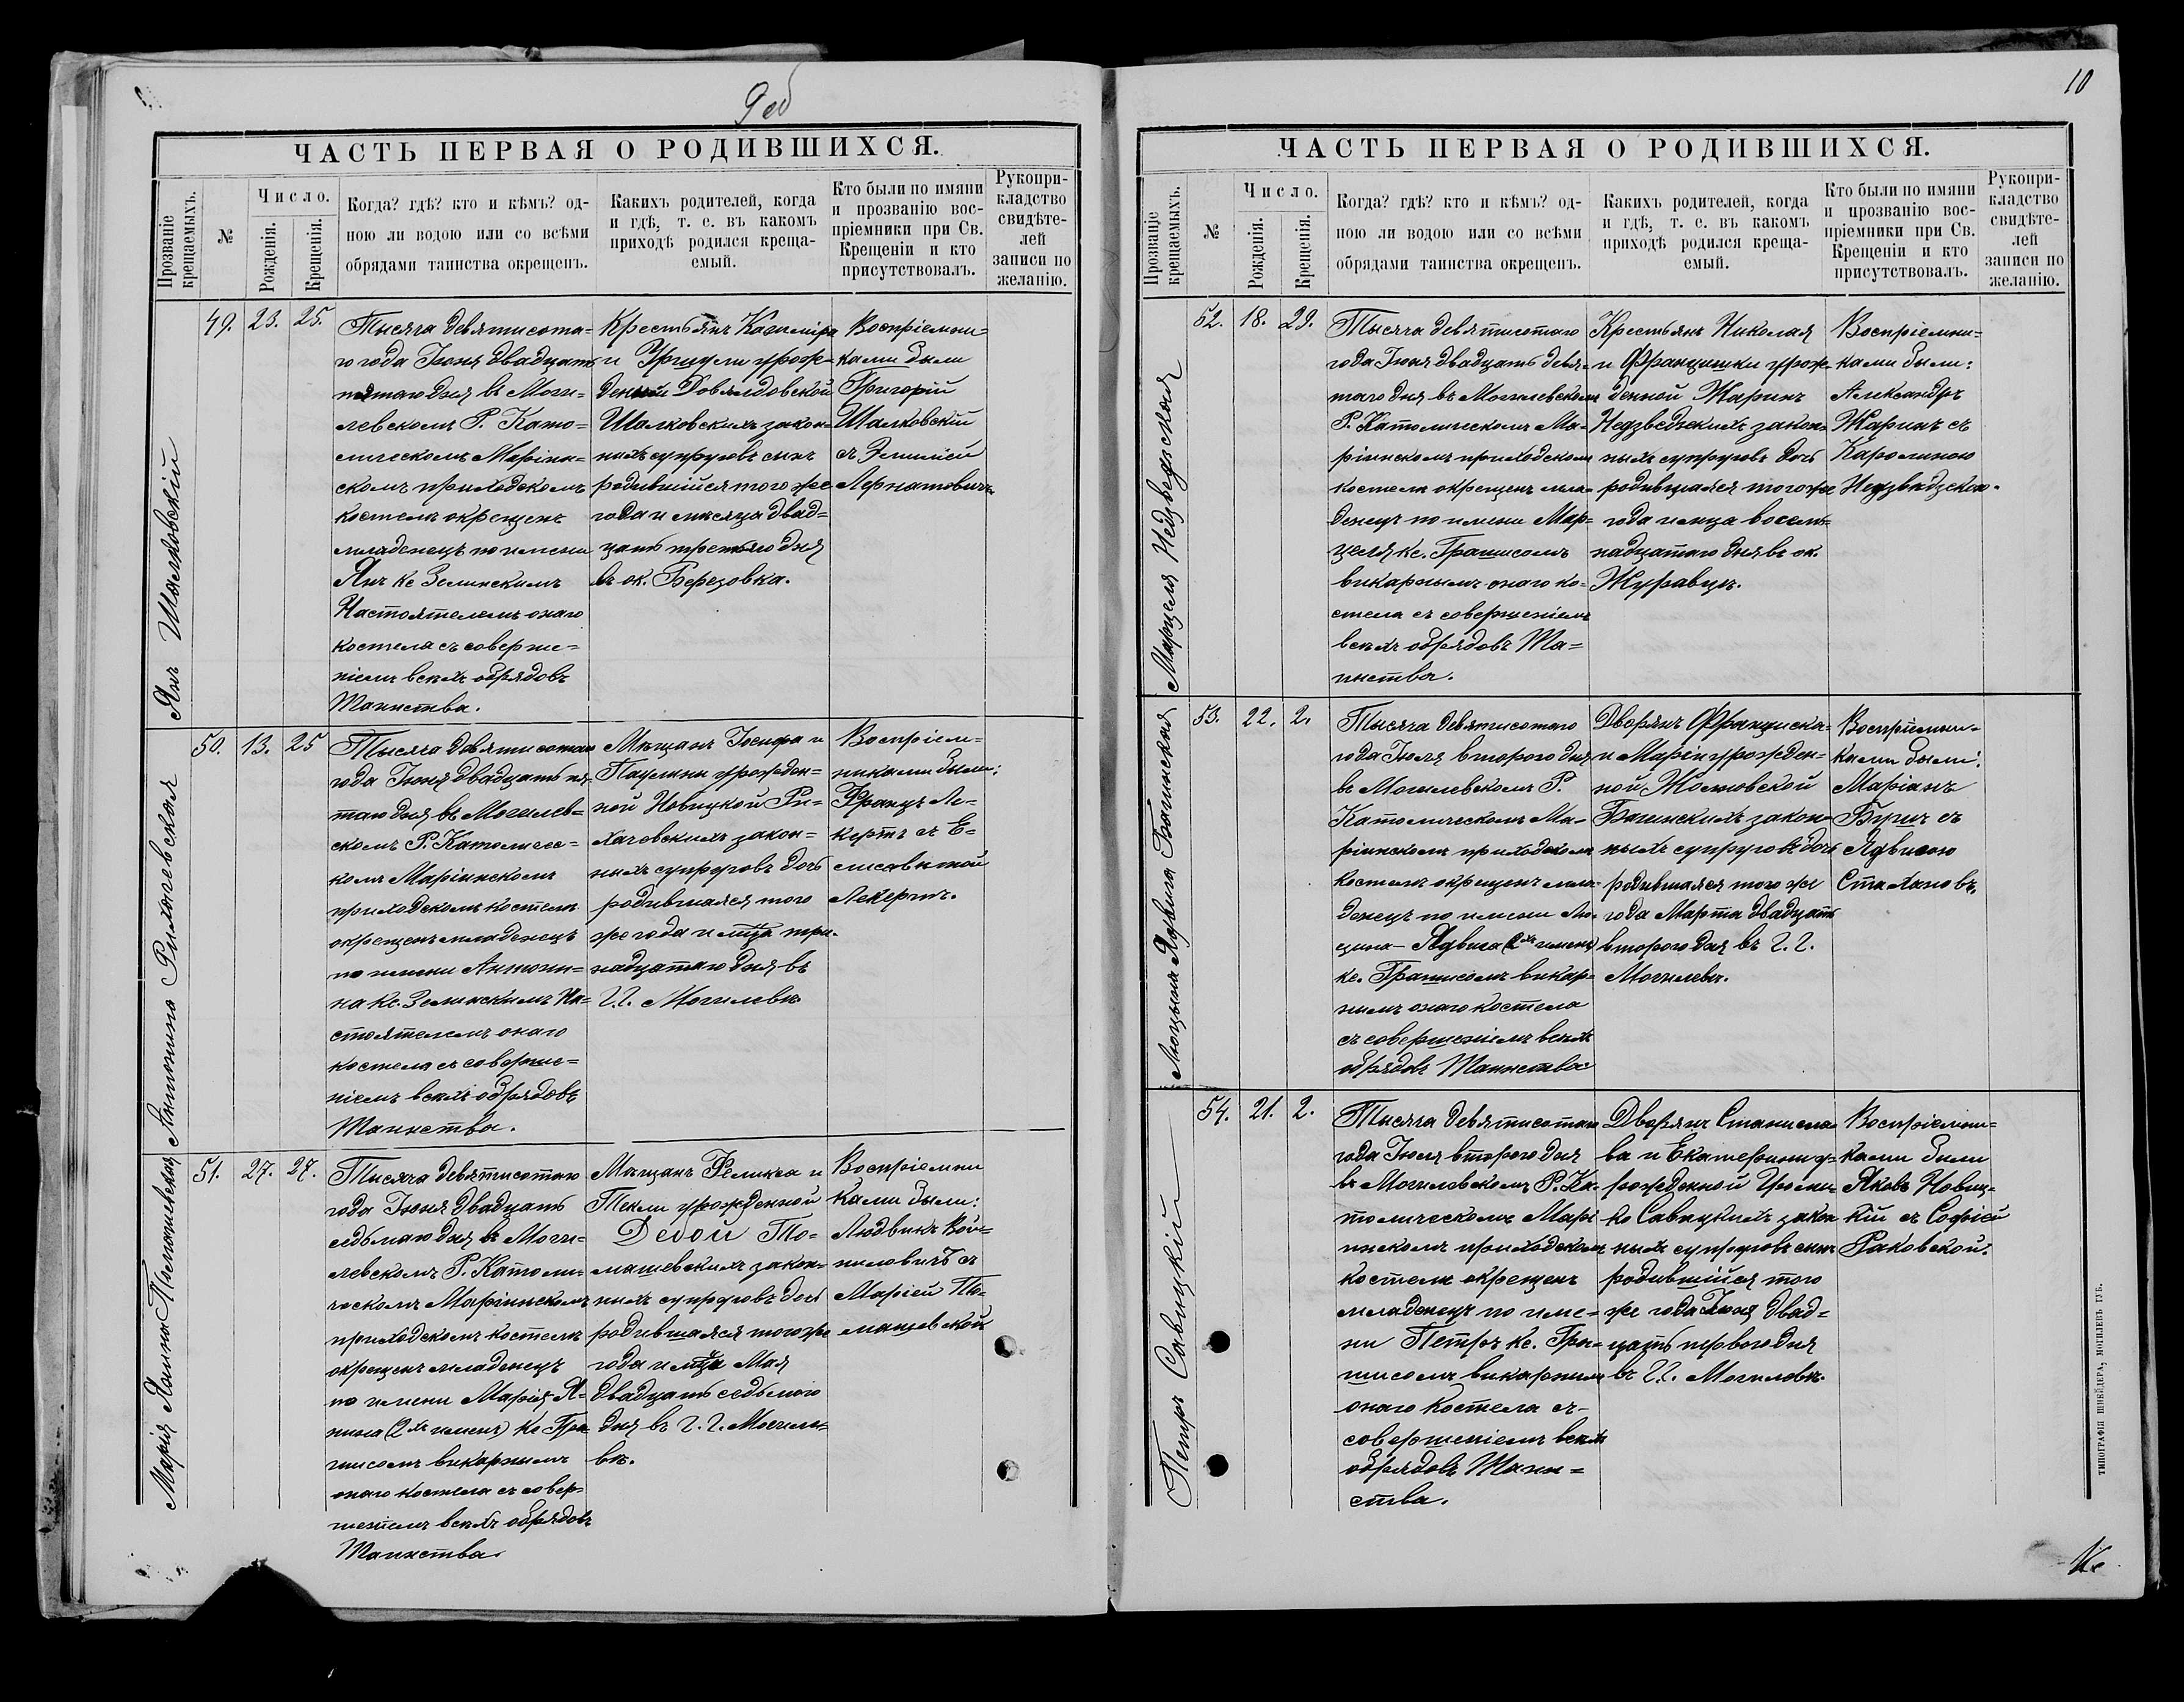 9 об
ЧАСТЬ ПЕРВАЯ О РОДИВШИХСЯ.
Прозваніе крещаемыхъ.
№
Число.
Рожденія.
Крещенія.
Когда? гдѣ? кто и кѣмъ? од-
ною ли водою или со всѣми
обрядами таинства окрещенъ.
Какихъ родителей, когда
и гдѣ, т. е. въ какомъ
приходѣ родился креща-
емый.
Кто были по имяни
и прозванію вос-
пріемники при Св.
Крещеніи и кто
присутствовалъ.
Рукопри-
кладство
свидѣте-
лей
записи по
желанію.
Янъ Шалковскій
49.
23.
25.
Тысяча девятисота-
го года Іюня двадцать
пятаго дня въ Моги-
левскомъ Р. Като-
лическомъ Маріин-
скомъ приходскомъ
костелѣ окрещенъ
младенецъ по имени
Янъ кс Зелинскимъ
Настоятелемъ онаго
костела съ соверше-
ніемъ всѣхъ обрядовъ
Таинства.
Крестьянъ Казимiра
и Уршули урож-
денной Довялдовской
Шалковскихъ закон-
ныхъ супруговъ сынъ
родившійся того же
года и мѣсяца двад-
цать третьяго дня
въ ок. Березовка.
Воспріемни-
ками были
Григорій
Шалковскій
съ Эмиліей
Антонина Рихачевская
50.
13.
25
Тысяча девятисотаго
года Іюня двадцать пя-
таго дня въ Могилев-
скомъ Р. Католичес-
комъ Маріинскомъ
приходскомъ костелѣ
окрещенъ младенецъ
по имени Антони-
на Кс. Зелинскимъ На-
стоятелемъ онаго
костела съ соверше-
ніемъ всѣхъ обрядовъ
Таинства.
Мѣщанъ Іосифа и
Паулины урожден-
ной Новицкой Ри-
хачевскихъ закон-
ныхъ супруговъ дочь
родившаяся того
же года и мѣца три-
надцатаго дня въ
Г. Г. Могилевѣ
Воспріем-
никами были:
Францъ Ле-
кертъ съ Е-
лисаветой
Лекертъ.
Марія Янина Томашевская
51.
27.
27.
Тысяча девятисотаго
года Іюня двадцать
седьмаго дня въ Моги-
левскомъ Р. Католи-
ческомъ Маріинскомъ
приходскомъ костелѣ
окрещенъ младенецъ
по имени Марія, Я-
нина (2хъ именъ) кс Гра-
шисомъ викарнымъ
онаго костела съ совер-
шеніемъ всѣхъ обрядовъ
Таинства.
Мѣщанъ Феликса и
Теклы урожденной
То-
машевскихъ закон-
ныхъ супруговъ дочь
родившаяся того же
года и мѣца Мая
двадцать седьмого
дня въ Г. Г. Могиле-
вѣ.
Воспріемни
ками были:
Людвикъ Вой-
ниловичъ съ
Маріей То-
машевской
10
ЧАСТЬ ПЕРВАЯ О РОДИВШИХСЯ.
Прозваніе крещаемыхъ.
№
Число.
Рожденія.
Крещенія.
Когда? гдѣ? кто и кѣмъ? од-
ною ли водою или со всѣми
обрядами таинства окрещенъ.
Какихъ родителей, когда
и гдѣ, т. е. въ какомъ
приходѣ родился креща-
емый.
Кто были по имяни
и прозванію вос-
пріемники при Св.
Крещеніи и кто
присутствовалъ.
Рукопри-
кладство
свидѣте-
лей
записи по
желанію.
Марцеля Недзведзская
52.
18.
29.
Тысяча девятисотаго
года Іюня двадцать девя-
таго дня въ Могилевскомъ
Р. Католическомъ Ма-
ріинскомъ приходскомъ
костелѣ окрещенъ мла-
денецъ по имени Мар-
целя кс. Грашисомъ
викарнымъ онаго ко-
стела съ совершеніемъ
всѣхъ обрядовъ Та-
инства.
Крестьянъ Николая
и Францишки урож-
денной Жаринъ
Недзведзскихъ закон-
ныхъ супруговъ дочь
родившаяся того же
года и мца восем-
надцатаго дня въ ок.
Журавцы.
Воспріемни-
ками были:
Александръ
Жаринъ съ
Каролиною
Недзвѣдзскою.
Люцыня Ядвига Багинская
53.
22.
2.
Тысяча девятисотаго
года Іюля второго дня
въ Могилевскомъ Р.
Католическомъ Ма-
ріинскомъ приходскомъ
костелѣ окрещенъ мла-
денецъ по имени Лю-
цина-Ядвига (2хъ именъ)
кс. Грашисомъ викар-
нымъ онаго костела
съ совершеніемъ всѣхъ
обрядовъ Таинства
Дворянъ Франциска
и Маріи урожден-
ной
Багинскихъ закон-
ныхъ супруговъ дочь
родившаяся того же
года Марта двадцать
второго дня въ Г. Г.
Могилевѣ.
Воспріемни-
ками были:
Маріанъ
съ
Ядвигою
Стахановъ.
Петръ Савицкій
54.
21.
2.
Тысяча девятисотаго
года Іюля второго дня
въ Могилевскомъ Р. Ка-
толическомъ Марі
инскомъ приходскомъ
костелѣ окрещенъ
младенецъ по име-
ни Петръ кс. Гра-
шисомъ викарнымъ
онаго костела съ-
совершеніемъ всѣхъ
обрядовъ Таин-
ства.
Дворянъ Станисла-
ва и Екатерины у-
рожденной
Савицкихъ закон
ныхъ супруговъ сынъ
родившійся того
же года Іюня двад-
цать перваго дня
въ Г. Г. Могилевѣ.
Воспріемни-
ками были
Яковъ Новиц-
кій съ Софіей
Раковской.
ТИПОГРАФІЯ ШНЕЙДЕРА, МОГИЛЕВЪ ГУБ.